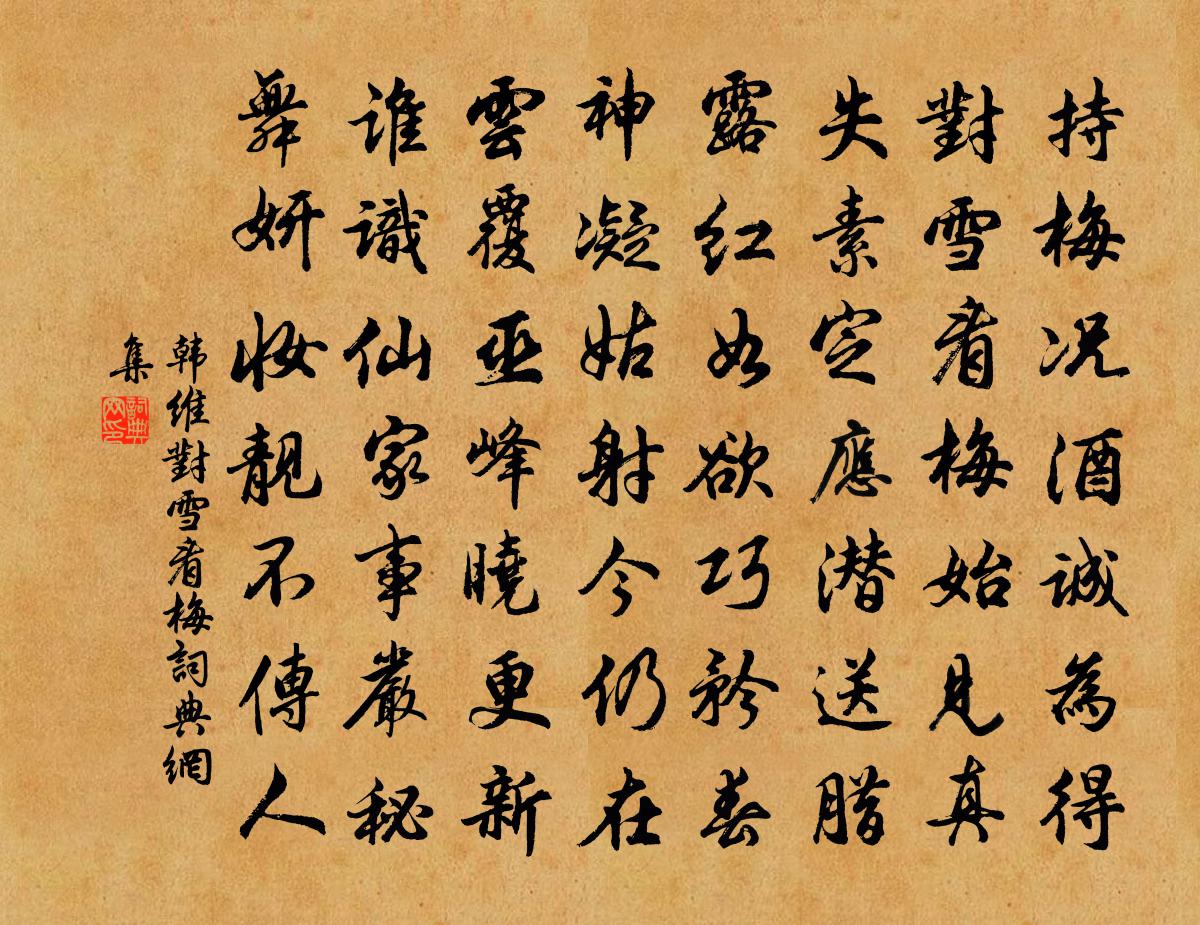 持梅况酒誠為得
對雪看梅始見真
失素定應潜送腊
露紅如欲巧矜春
神凝姑射今仍在
雲覆巫峰曉更新
誰識仙家事嚴秘
舞妍妝靚不傳人
韩維對雪看梅詞典網
集
詞典
网印